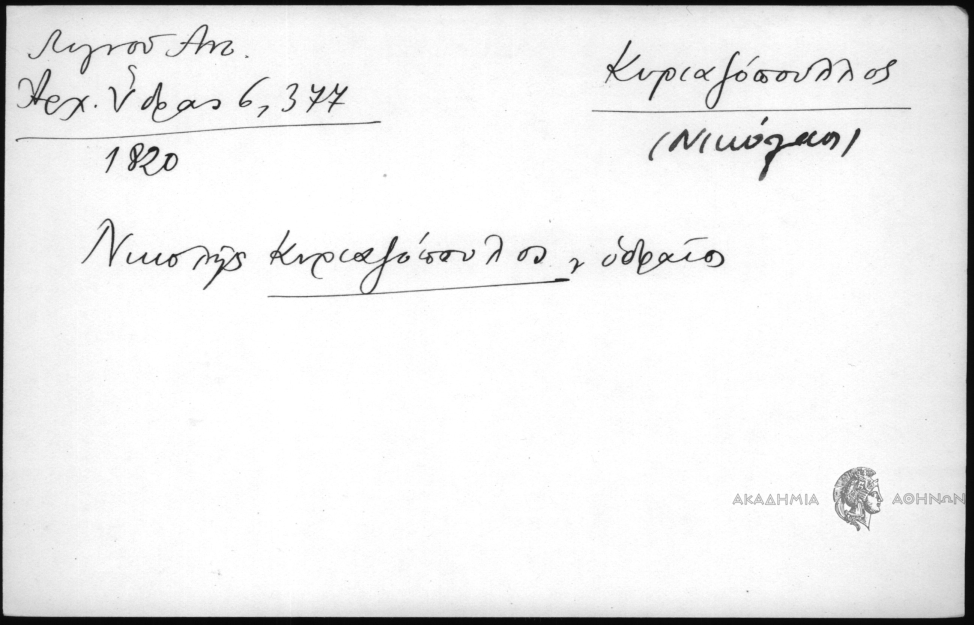 Λιγνού Αντ.
Αρχ. Ύδρας 6, 377
1820
Κυριαζόπουλλος
(Νικόλαος)
Νικολής Κυριαζόπουλος, υδραίος
ΑΚΑΔΗΜΙΑ ΑΘΗΝΩΝ